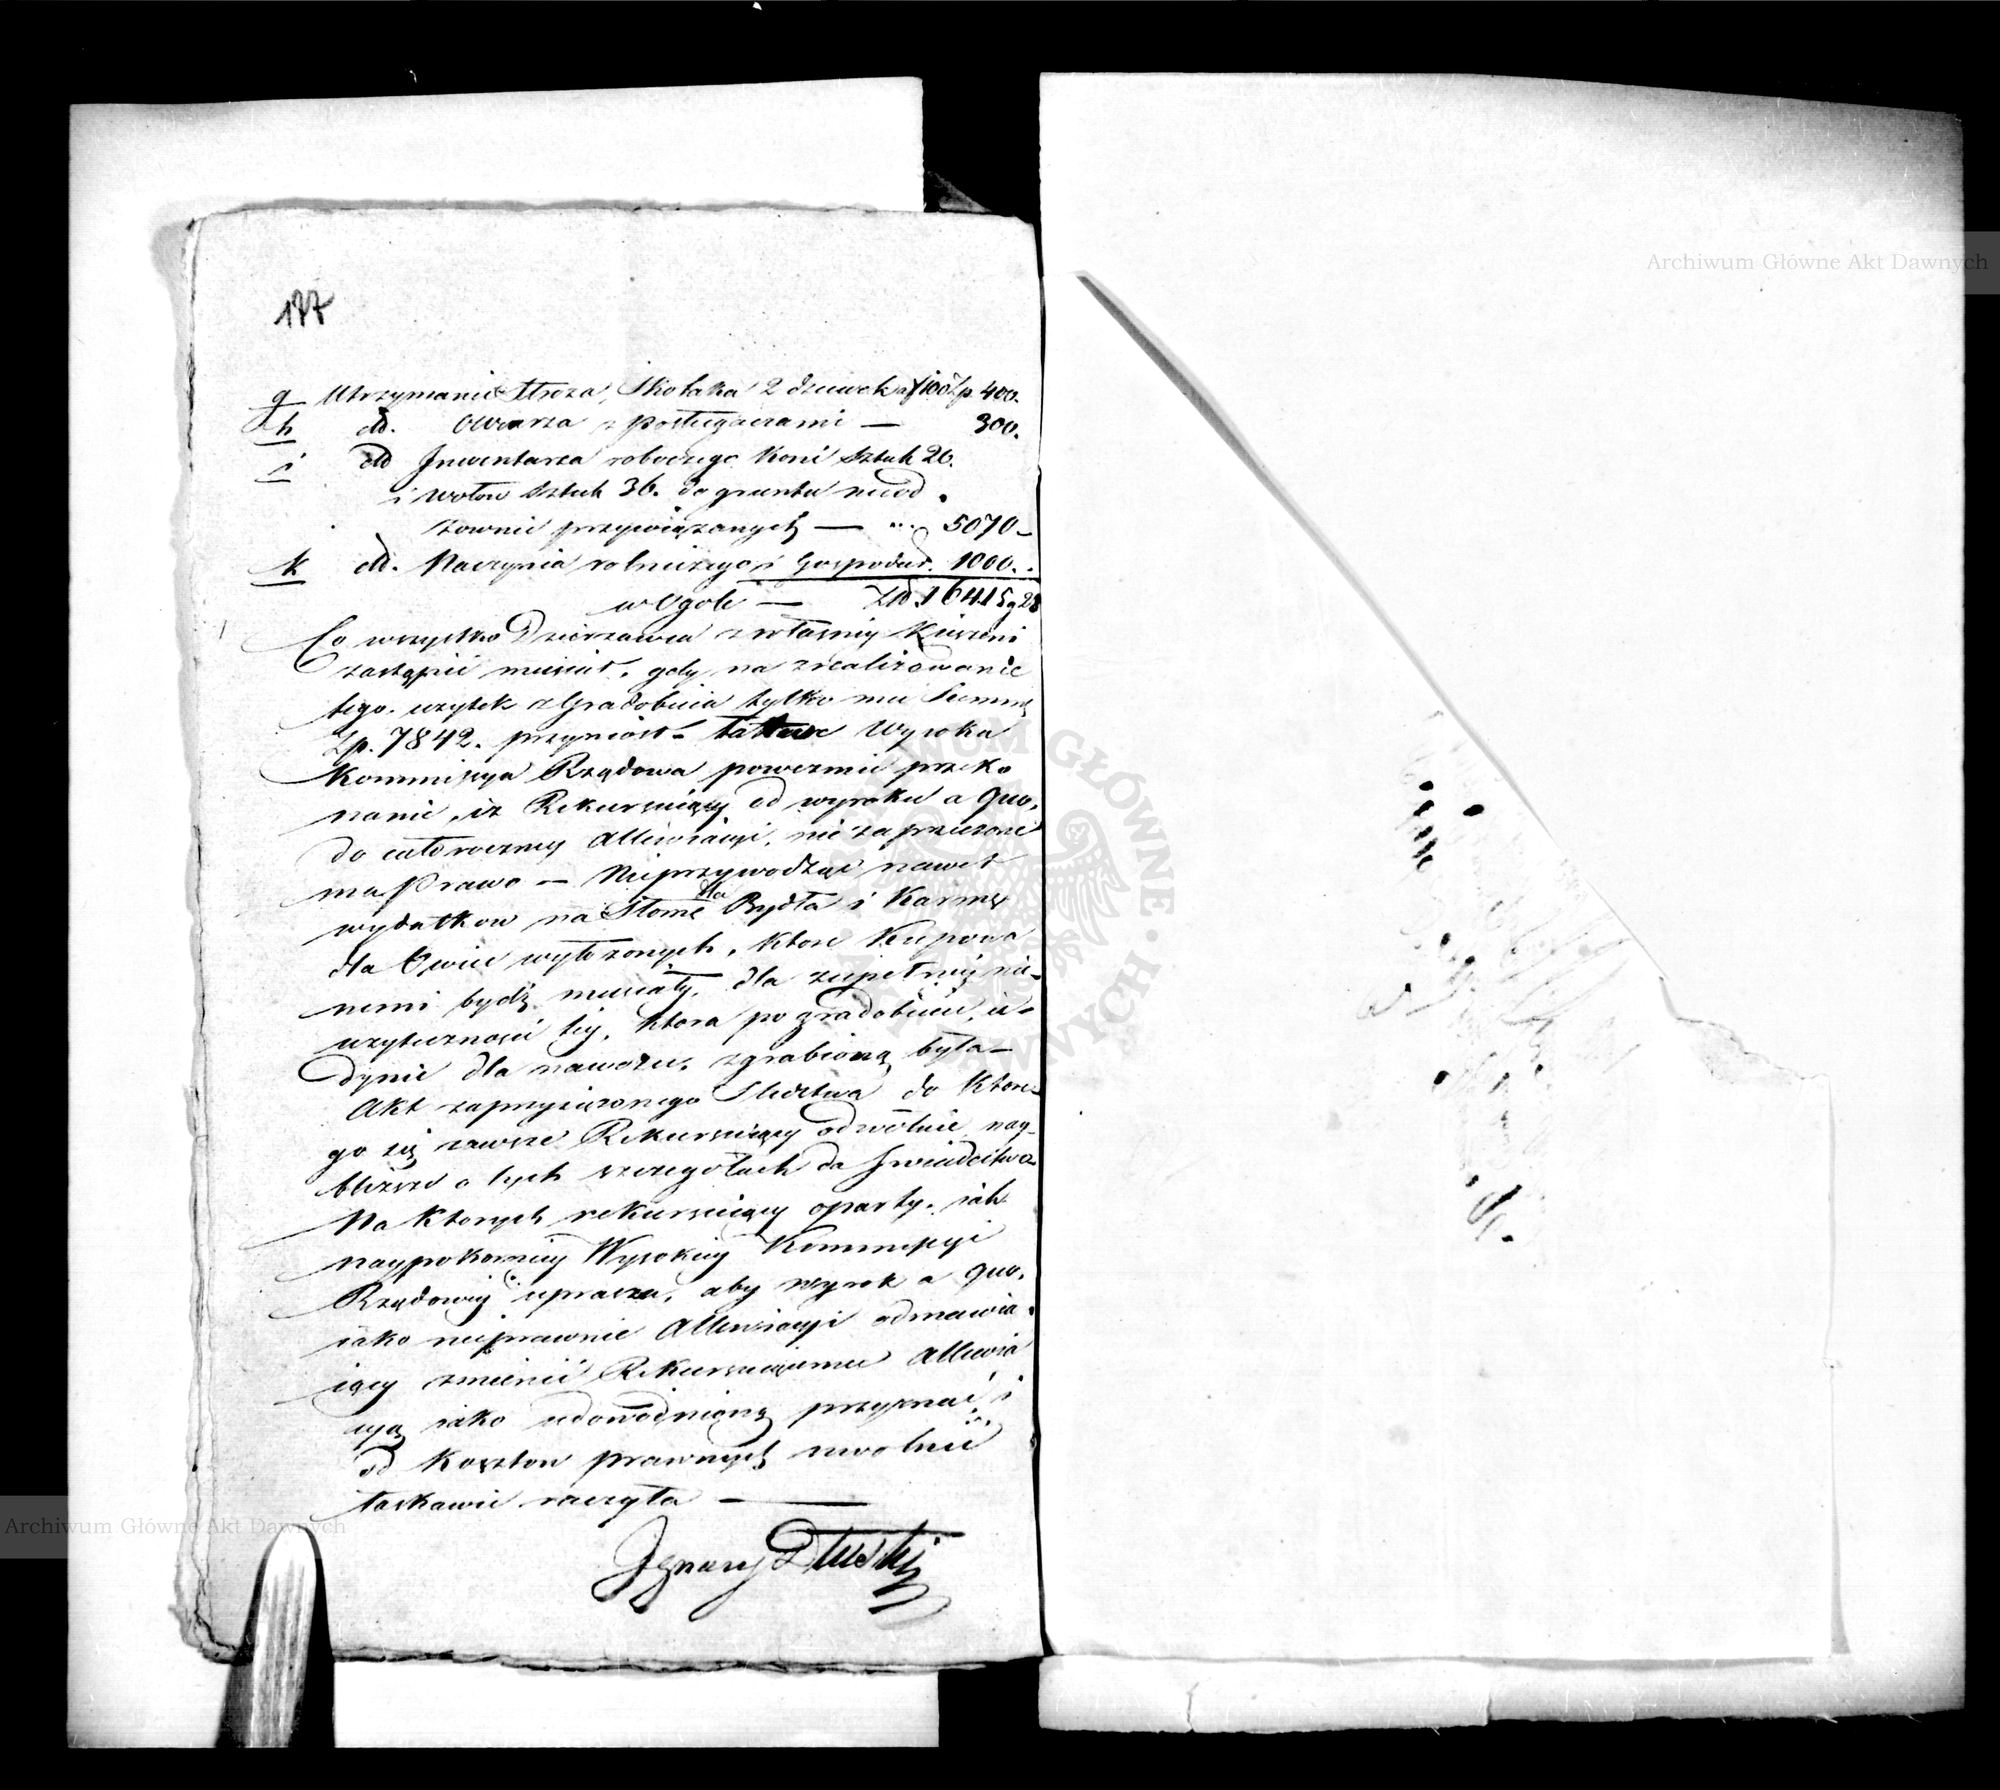 177
g Utrzymanie Stroza, Skotaka 2 dziewek a f 100 Zp. 400.
h dtd. Owczarza z posługaczami — 300.
i dtd Inwentarza roboczego Koni Sztuk 26.
i wołow Sztuk 36. do gruntu nieod
zownie przywiązanych — „ 5070 –
k dtd. Naczynia rolniczego i Gospodar. 1000.
w Ogole — Złp. 16415 g 28
Co wszystko Dzierzawca z własney Kieszeni
zastąpić musiał, gdy na zrealizowanie
tego. uzytek z Gradobicia tylko mu Summę
Zp. 7842. przyniosł – Wysoka
Kommissya Rządowa powezmie przeko
nanie, iz Rekursuiący od wyroku a quo,
do całoroczney Allewiacyi, nie zaprzeczone
ma Prawo — Nieprzywodząc nawet
wydatkow na Słomę dla Bydła i Karmę
dla Owiec wyłozonych, ktore Kupowa
nemi bydź musiały, dla zupełney nie-
uzytecznosci tey, ktora po gradobiciu, ie-
dynie dla nawozu, zgrabioną była –
Akt zaprzysięzonego Sledztwa do ktore-
go się zawsze Rekursuiący odwołuie nay-
blizsze o tych szczegołach da Swiadectwo
Na ktorych rekursuiący oparty, iak
naypokorniey Wysokiey Kommissyi
Rządowey uprasza, aby wyrok a quo,
iako nieprawnie Allewiacyi odmawia
iący zmienić Rekursuiącemu Allewia
cyą iako udowodnioną przyznać, i
od Kosztow prawnych uwolnić
łaskawie raczyła —
Ignacy Dłuski
Archiwum Główne Akt Dawnych
Archiwum Główne Akt Dawnych